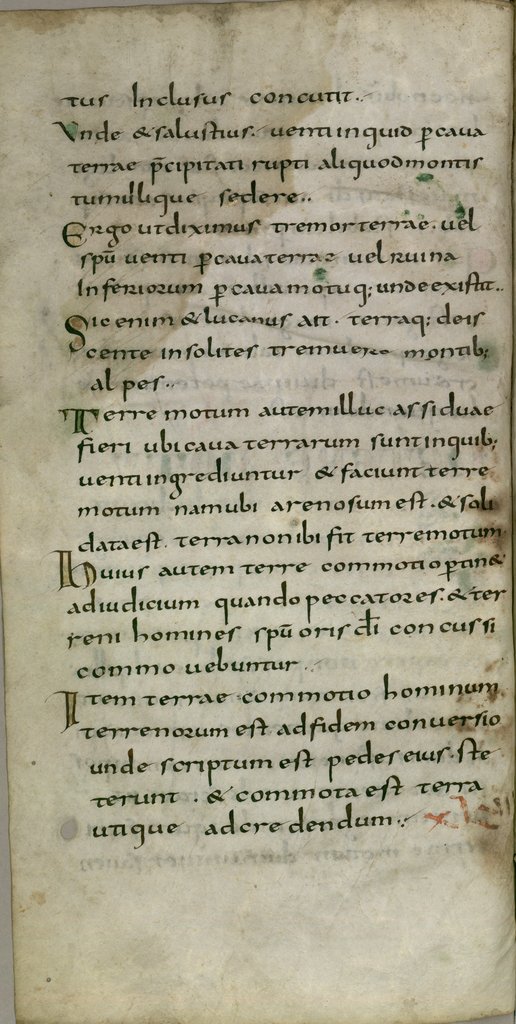 tus Inclusus concutit..
Vnde & salustius. uenti inquid p caua
terrae p̄cipitati rupti aliquod montis
tumulique sedere..
Ergo ut diximus tremor terrae. uel
spū uenti p caua terrae uel ruina
Inferiorum p caua motuq; unde existit..
Sic enim & lucanus ait. terraq; deis
cente insolites tremuere montib;
alpes..
Terre motum autem illuc assiduae
fieri ubi caua terrarum sunt inquib;
uenti ingrediuntur & faciunt terre
motum nam ubi arenosum est. & soli
data est. terra non ibi fit terre motum
Huius autem terre commotio p tin&
adiudicium quando peccatores. & ter
reni homines spū oris dī concussi
commouebuntur..
Item terrae commotio hominum
terrenorum est adfidem conuersio
unde scriptum est pedes eius. ste
terunt. & commota est terra
utique adcredendum..